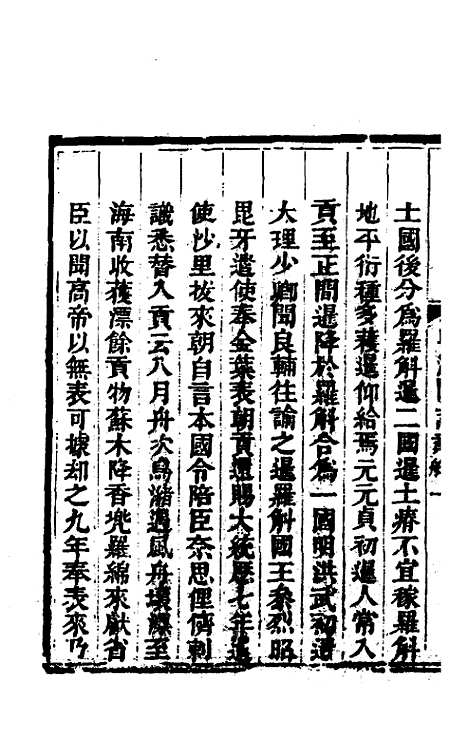 土國後分爲羅斛暹二國暹土瘠不宜稼羅斛
地平衍種多穫暹仰給焉元元貞初暹人常入
貢至正間暹降於羅斛合爲一國明洪武初遣
大理少卿聞良輔往諭之暹羅斛國王參烈昭
毘牙遣使奉金葉表朝貢還賜大統歷七年遣
使沙里拔來朝自言本國令陪臣奈思俚儕剌
識悉替入貢去八月舟次烏瀦遇風舟壞漂至
海南收穫漂餘貢物蘇木降香兜羅綿來獻省
臣以聞高帝以無表可據却之九年奉表來